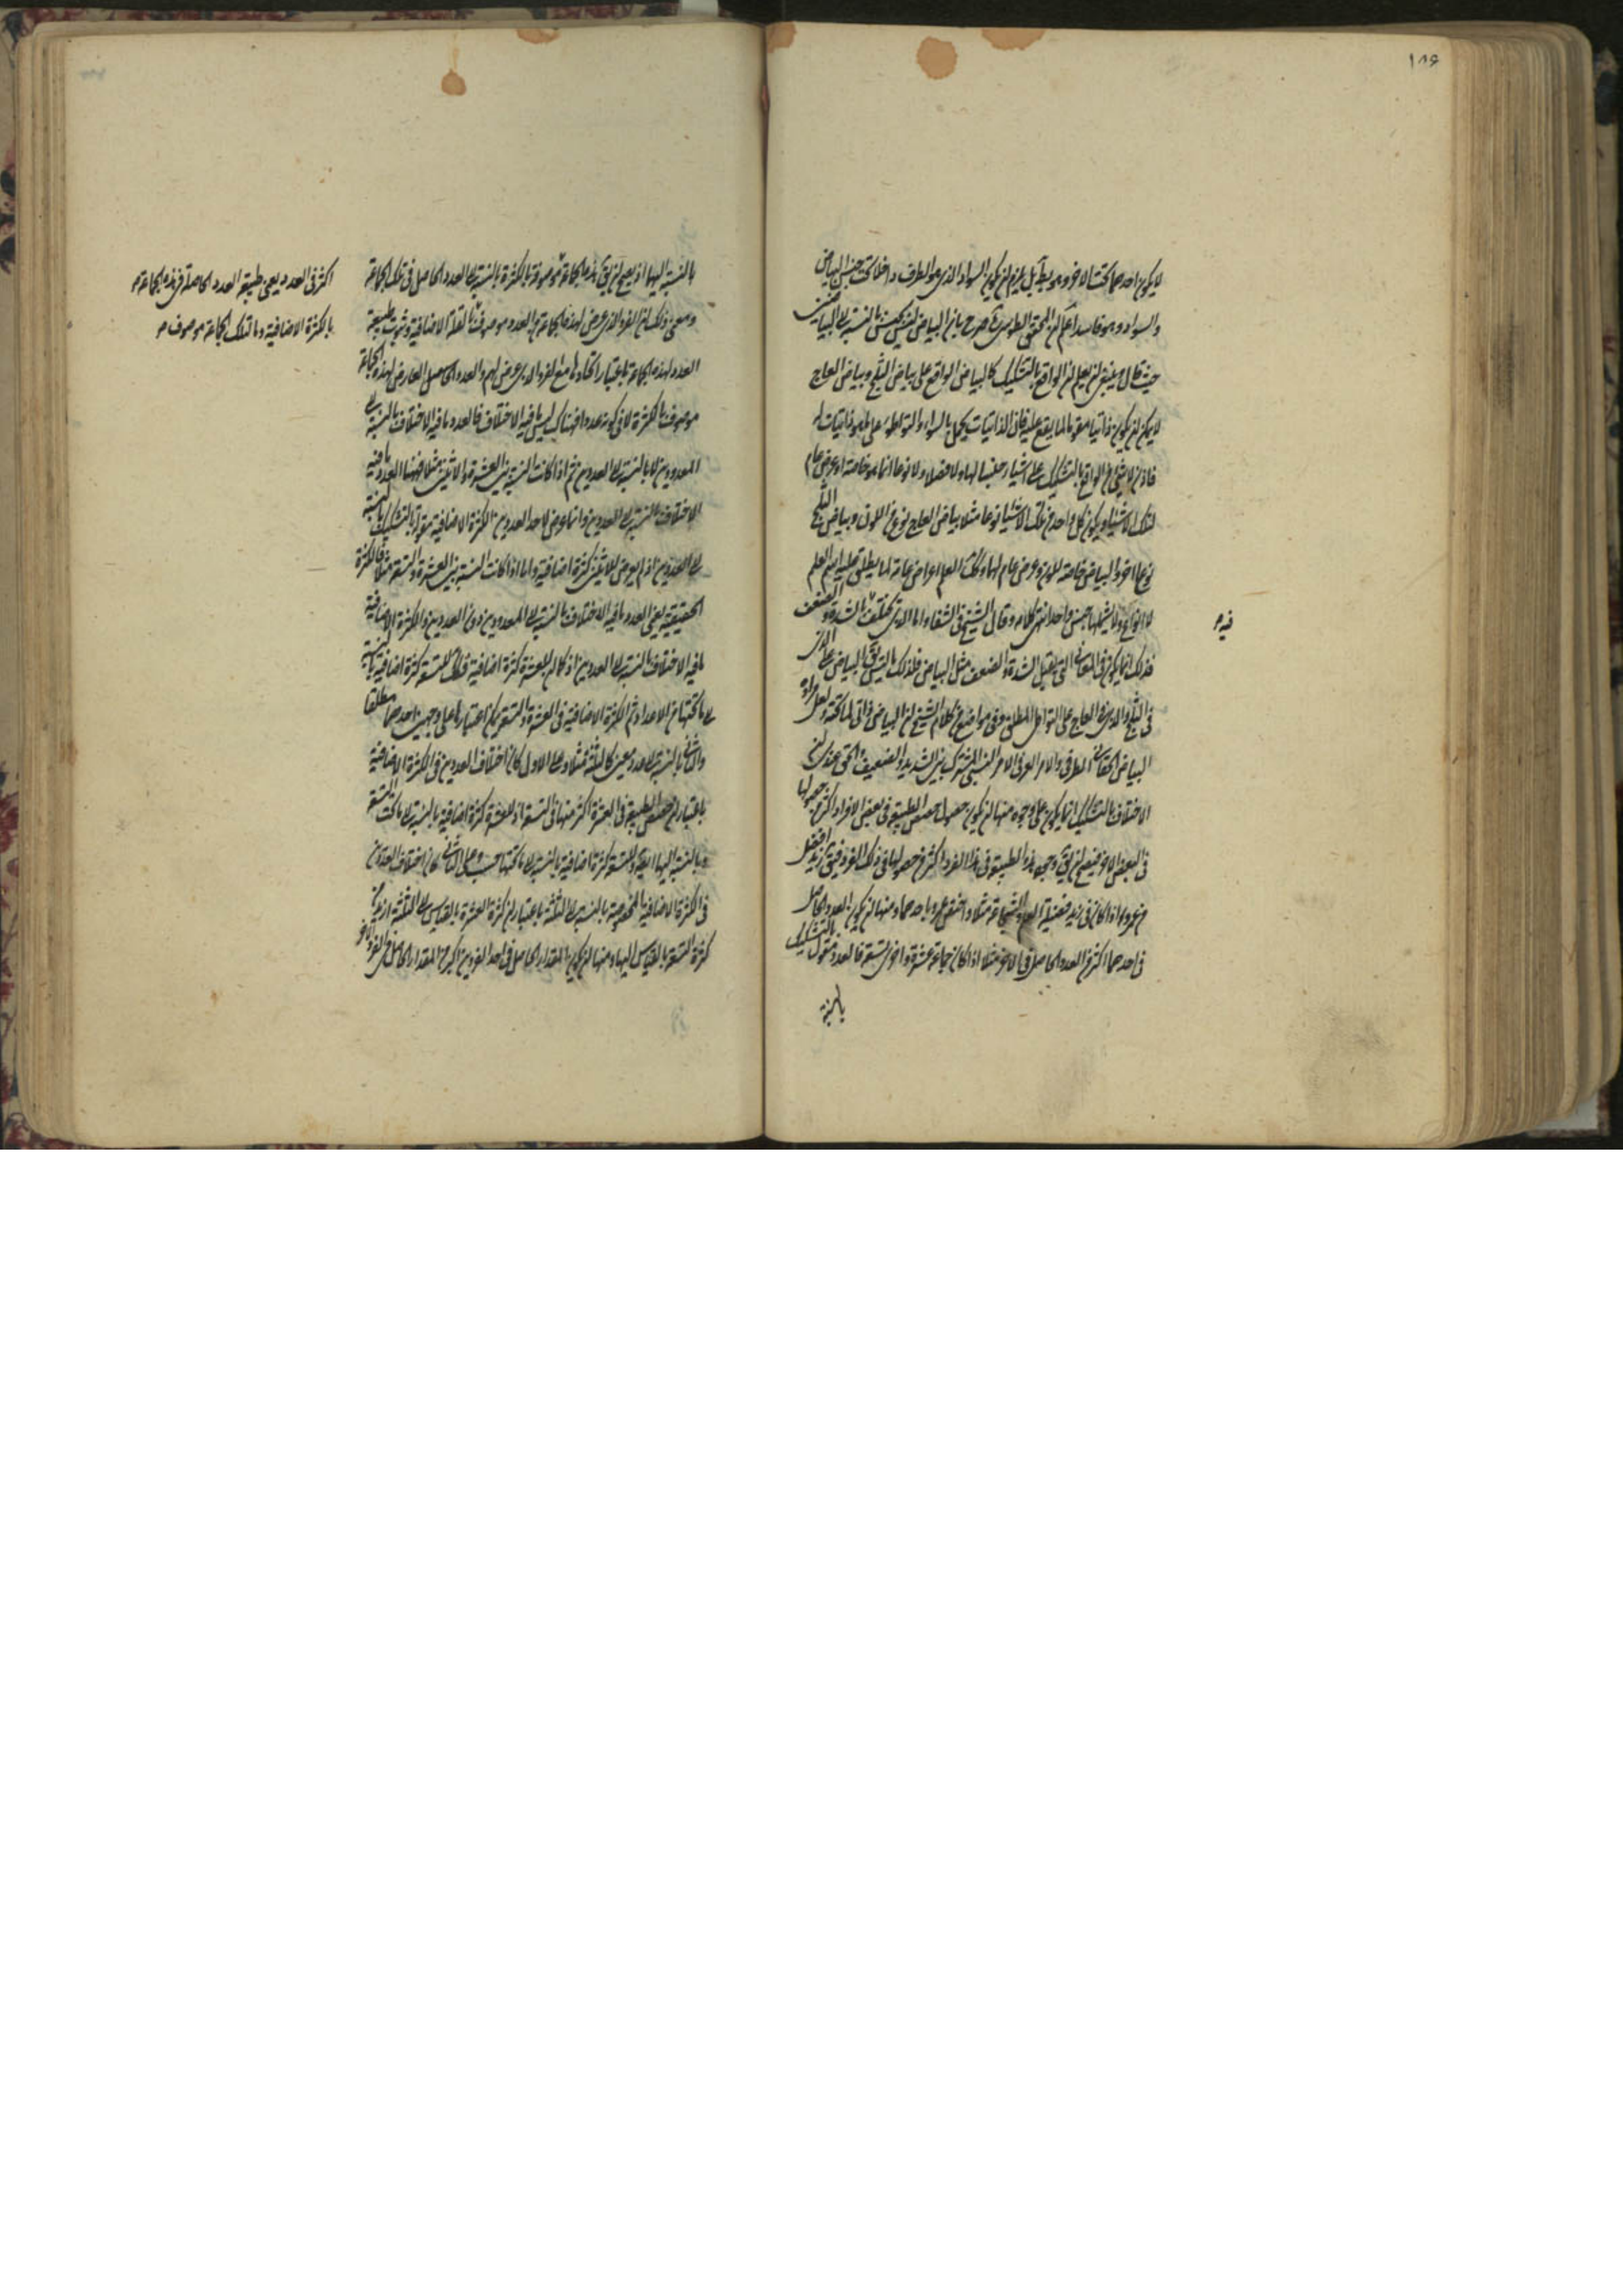 ١٨٦
لا يكون احدهما تحت الاخر وهو بط بل يلزم ان يكون السواد الذي هو الطرف داخلا تحت جنس البياض
والسواد وهو فاسد اعلم ان المحقق الطوسي صرح بان البياض ليس بجنس بالنسبة الى البياضين
حيث قال وينبغي ان يعلم ان الواقع بالتشكيك كالبياض الواقع على بياض الثلج وبياض العاج
لا يمكن ان يكون ذاتيا مقوما لما يقع عليه فان الذاتيات يحمل بالسواء والتواطؤ على ما هو ذاتيات له
فاذن لا شئ من الواقع بالتشكيك على اشياء جنسا لها ولا فصلا ولا نوعا انما هو خاصة او عرض عام
لتلك الاشياء ويكون كل واحد من تلك الاشياء نوعا مثلا بياض العاج نوع من اللون وبياض الثلج
نوعا اخر والبياض خاصة للون وعرض عام لهما وكك العلم اعراض عامة لما يطلق عليه اسم العلم
لا انواع ولا يشملها جنس واحد انتهى كلامه وقال الشيخ في الشفاء اما الذي يختلف بالشدة والضعف
فذلك انما يكون في المعاني التي يقبل الشدة والضعف مثل البياض فلذلك ليس يق البياض على الذي
في الثلج والذي في العاج على التواطؤ المطلق وفي مواضع من كلام الشيخ ان البياض ذاتي لما تحته ولعل مراده
البياض الحقاني الطرفي والامر العرفي الامر النسبي المشترك بين الشديد والضعيف والحق عندي ان
الاختلاف بالتشكيك انما يكون على وجوه منها ان يكون حصول حصص الطبيعة في بعض الافراد اكثر من حصولها
في البعض الاخر فيصح ان يق وجود هذه الطبيعة في هذا الفرد اكثر من حصولها في ذلك الفرد فيق زيد افضل
من عمرو اذا كان في زيد فضيلة العلم والشجاعة مثلا واختص عمرو باحدهما ومنها ان يكون العدد الحاصل
في احدهما اكثر من العدد الحاصل في الاخر مثلا اذا كان جماعة عشرة واخرى تسعة فالعدد مقول بالتشكيك
بالنسبة
فيه م
بالنسبة اليهما اذ يصح ان يق هذه الجماعة موصوفة بالكثرة بالنسبة الى العدد الحاصل في تلك الجماعة
ومعنى ذلك ان الفرد الذي عرض لهذه الجماعة من العدد موصوف بالقلة الاضافية وثبوت طبيعة
العدد لهذه الجماعة باعتبار اتحادها مع الفرد الذي عرض لهم والعدد الحاصل العارض لهذه الجماعة
موصوف بالكثرة لا في كونه عددا فهناك ليس ما فيه الاختلاف فالعدد ما فيه الاختلاف بالنسبة الى
المعدودين لا بالنسبة الى العددين ثم اذا كانت النسبة بين العشرة والاثنين مثلا فههنا العدد ما فيه
الاختلاف بالنسبة الى المعدودين وانما عرض لاحد العددين الكثرة الاضافية مقولة بالتشكيك بالنسبة
الى العددين اذ لم يعرض للاثنين كثرة اضافية واما اذا كانت النسبة بين العشرة والتسعة مثلا فالكثرة
الحقيقية يعني العدد ما فيه الاختلاف بالنسبة الى المعدودين دون العددين والكثرة الاضافية
ما فيه الاختلاف بالنسبة الى العددين اذ كما ان للعشرة كثرة اضافية فكك للتسعة كثرة اضافية بالنسبة
الى ما تحتها من الاعداد ثم الكثرة الاضافية في العشرة والتسعة يمكن اعتبارها على وجهين احدهما مطلقا
والثاني بالنسبة الى عدد معين كالثلثة مثلا وعلى الاول كان اختلاف العددين في الكثرة الاضافية
باعتبار ان حصص الطبيعة في العشرة اكثر منها في التسعة اذ للعشرة كثرة اضافية بالنسبة الى ما تحت التسعة
وبالنسبة اليها ايضا وللتسعة كثرة اضافية بالنسبة الى ما تحتها حسب وعلى الثاني كان اختلاف العددين
في الكثرة الاضافية المخصوصة بالنسبة الى الثلثة باعتبار ان كثرة العشرة بالقياس الى الثلثة ازيد من
كثرة التسعة بالقياس اليها ومنها ان يكون المقدار الحاصل في احد الفردين اكبر من المقدار الحاصل في الفرد الاخر
اكثر في العدد يعني طبيعة العدد الحاصلة في هذه الجماعة م
بالكثرة الاضافية وما لتلك الجماعة موصوف م